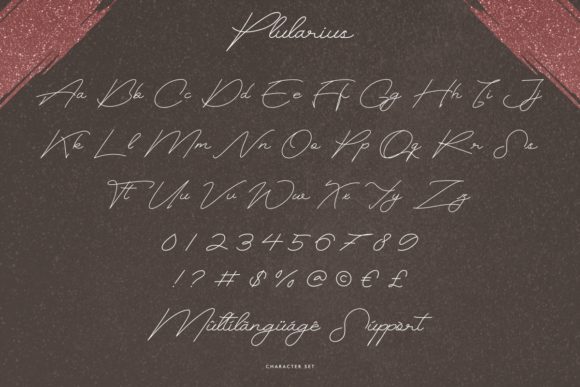 Plularius
Aa Bb Cc Dd Ee Ff Gg Hh Ii Jj
Kk Ll Mm Nn Oo Pp Qq Rr Ss
Tt Uu Vv Ww Xx Yy Zz
0 1 2 3 4 5 6 7 8 9
! ? # $ % @ © € £
Mûltilàngüágè Súppòrt
CHARACTER SET